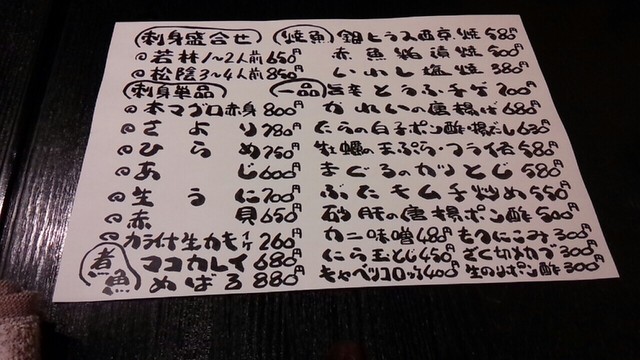 刺身盛合せ
若林1〜2人前650円
松陰3〜4人前850円
刺身単品
本マグロ赤身800円
さより780円
ひらめ750円
あじ600円
生うに700円
赤貝650円
カラ付生カキ1ケ260円
煮魚
マコカレイ680円
めばる880円
焼魚
銀ヒラス西京焼585円
赤魚粕漬焼500円
いわし塩焼380円
一品
旨辛とうふチゲ700円
かれいの唐揚げ680円
たらの白子ポン酢・揚だし630円
牡蠣の天ぷら・フライ各580円
まぐろのカツとじ580円
ぶたキムチ炒め550円
砂肝の唐揚ポン酢500円
カニ味噌480円 もつにこみ300円
にら玉とじ450円 ざく切りカブ300円
キャベツコロッケ400円 生のりポン酢300円